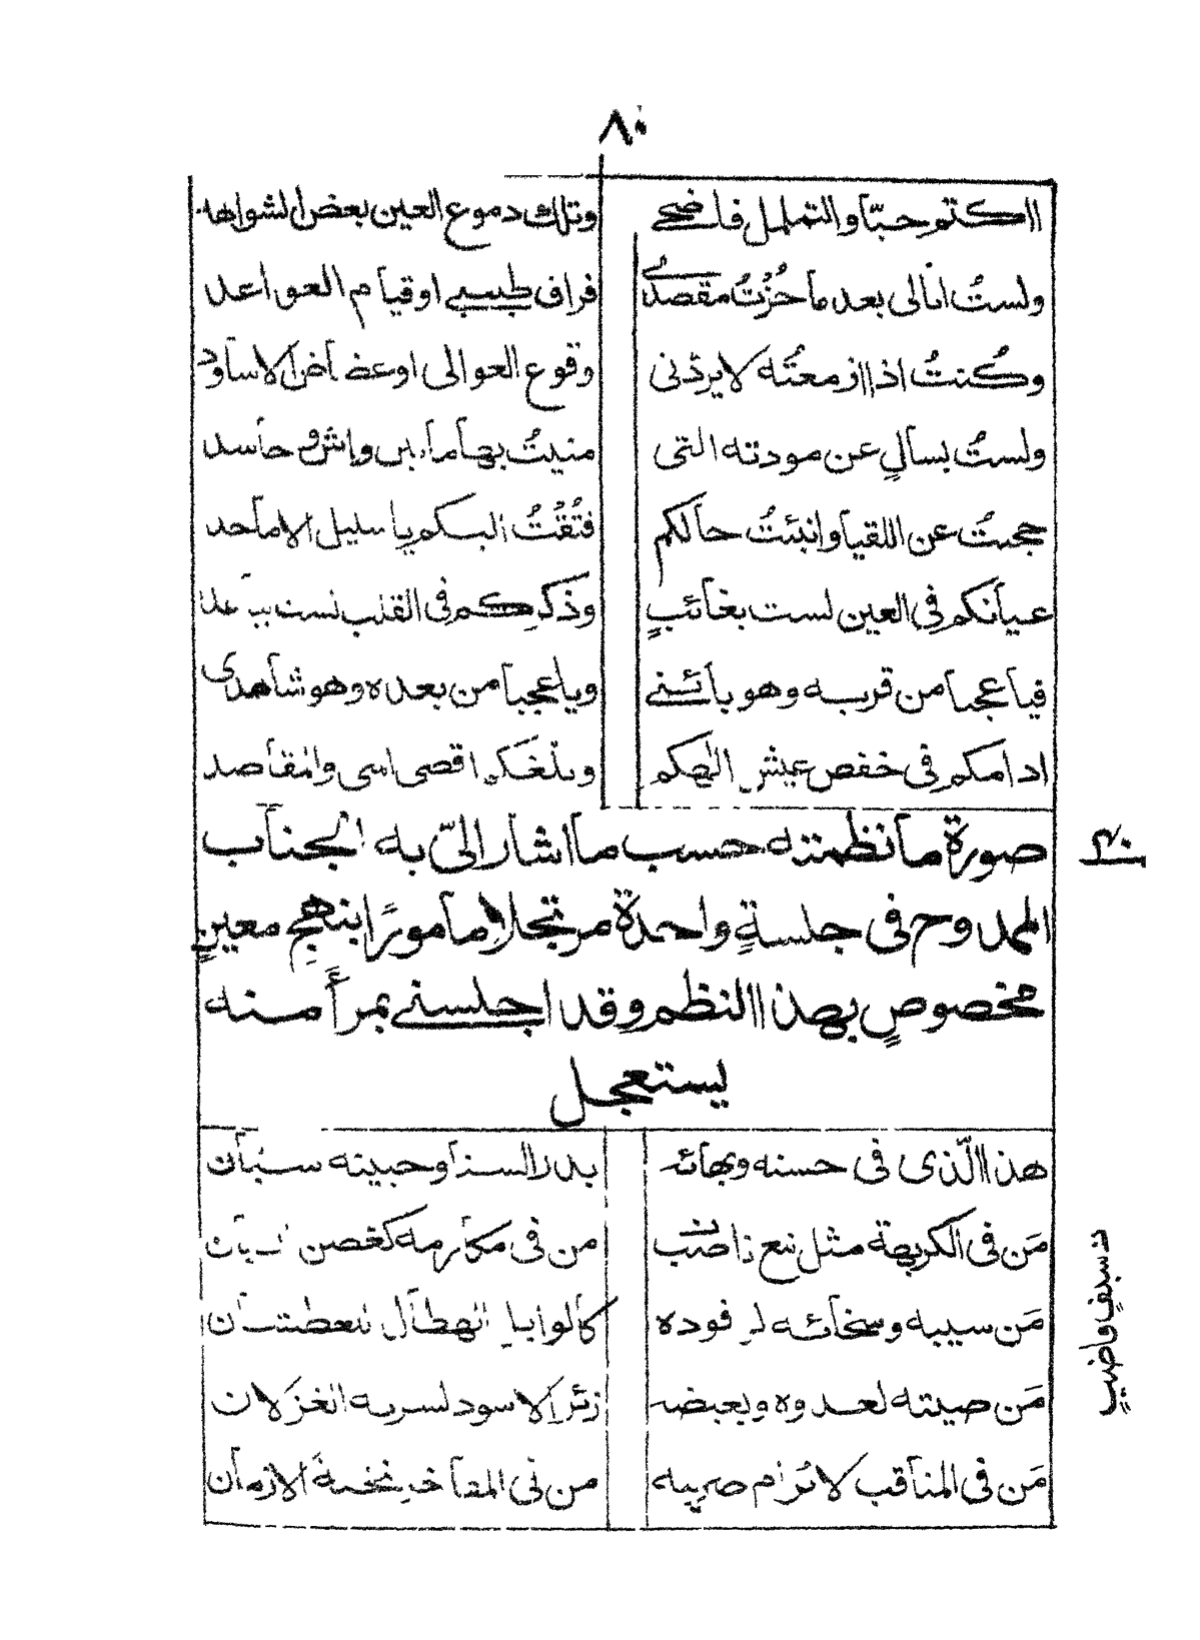 ٨٠
ااكتم حبّا والتململ فاضحى وتلك دموع العين بعض الشواهد
ولستُ انالى بعد ما حُزْتُ مقصدى فراق طبيبى او قيام العواعد
وكُنتُ اذا ازمعتُه لا يردنى وقوع العوالى او عضاض الاساود
ولستُ بسالٍ عن مودته التى منيتُ بها ما بين واشٍ و حاسد
حجبتُ عن اللقيا وانبئتُ حالكم فتُقْتُ اليكم يا سليل الاماجد
عيانكم فى العين لست بغائبٍ وذكركم فى القلب لست
فيا عجبا من قربه وهو بائنى ويا عجبا من بعده وهو شاهدى
ادامكم فى خفض عيش الهكم وبلغكم اقصى المنى والمقاصد
صورة ما نظمته حسب ما اشار الىّ به الجناب
الممدوح فى جلسةٍ واحدة مرتجلا مامورًا بنهجٍ معينٍ
مخصوصٍ بهذا النظم وقد اجلسنى بمرأً منه
يستعجل
هذا الّذى فى حسنه وبهائه بدر السنا وجبينه سيان
مَن فى الكريهة مثل نبع ناضب من فى مكارمه كغصن البان
مَن سيبه وسخائه لوفوده كالوابل الهطال للعطشان
مَن صيته لعدوه وبعيضه زئر الاسود لسربه الغزلان
مَن فى المناقب لا يُرام ضريبه من فى المفاخر نخبة الازمان